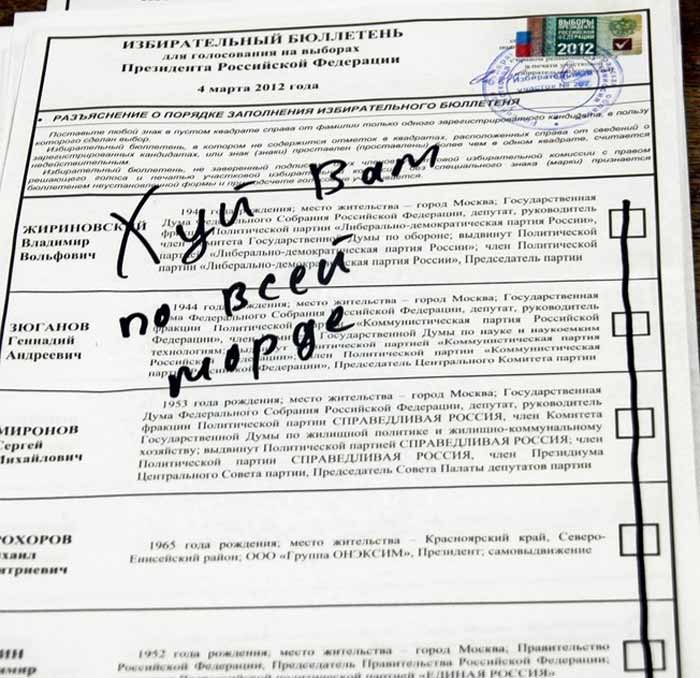 ИЗБИРАТЕЛЬНЫЙ БЮЛЛЕТЕНЬ
для голосования на выборах
Президента Российской Федерации
4 марта 2012 года
ВЫБОРЫ
ПРЕЗИДЕНТА
РОССИЙСКОЙ
ФЕДЕРАЦИИ
2012
• РАЗЪЯСНЕНИЕ О ПОРЯДКЕ ЗАПОЛНЕНИЯ ИЗБИРАТЕЛЬНОГО БЮЛЛЕТЕНЯ
Поставьте любой знак в пустом квадрате справа от фамилии только одного зарегистрированного кандидата, в пользу
которого сделан выбор.
Избирательный бюллетень, в котором не содержится отметок в квадратах, расположенных справа от сведений о
зарегистрированных кандидатах, или знак (знаки) проставлен (проставлены) более чем в одном квадрате, считается
недействительным.
Избирательный бюллетень, не заверенный подписями членов избирательной комиссии с правом
решающего голоса и печатью участковой избирательной специального знака (марки) признается
бюллетенем неустановленной формы и при подсчете голосов не учитывается.
Хуй Вам
по всей
морде
ЖИРИНОВСКИЙ
Владимир
Вольфович
1946 года рождения; место жительства – город Москва; Государственная
Дума Федерального Собрания Российской Федерации, депутат, руководитель
фракции Политической партии «Либерально-демократическая партия России»,
член Комитета Государственной Думы по обороне; выдвинут Политической
партией «Либерально-демократическая партия России»; член Политической
партии «Либерально-демократическая партия России», Председатель партии
ЗЮГАНОВ
Геннадий
Андреевич
1944 года рождения; место жительства – город Москва; Государственная
Дума Федерального Собрания Российской Федерации, депутат, руководитель
фракции Политической партии «Коммунистическая партия Российской
Федерации», член Комитета Государственной Думы по науке и наукоемким
технологиям; выдвинут Политической партией «Коммунистическая партия
Российской Федерации»; член Политической партии «Коммунистическая
партия Российской Федерации», Председатель Центрального Комитета партии
МИРОНОВ
Сергей
Михайлович
1953 года рождения; место жительства – город Москва; Государственная
Дума Федерального Собрания Российской Федерации, депутат, руководитель
фракции Политической партии СПРАВЕДЛИВАЯ РОССИЯ, член Комитета
Государственной Думы по жилищной политике и жилищно-коммунальному
хозяйству; выдвинут Политической партией СПРАВЕДЛИВАЯ РОССИЯ; член
Политической партии СПРАВЕДЛИВАЯ РОССИЯ, член Президиума
Центрального Совета партии, Председатель Совета Палаты депутатов партии
РОХОРОВ
хаил
итриевич
1965 года рождения; место жительства – Красноярский край, Северо-
Енисейский район; ООО «Группа ОНЭКСИМ», Президент; самовыдвижение
ИН
имир
1952 года рождения; место жительства – город Москва; Правительство
Российской Федерации, Председатель Правительства Российской Федерации;
Политической партией «ЕДИНАЯ РОССИЯ»